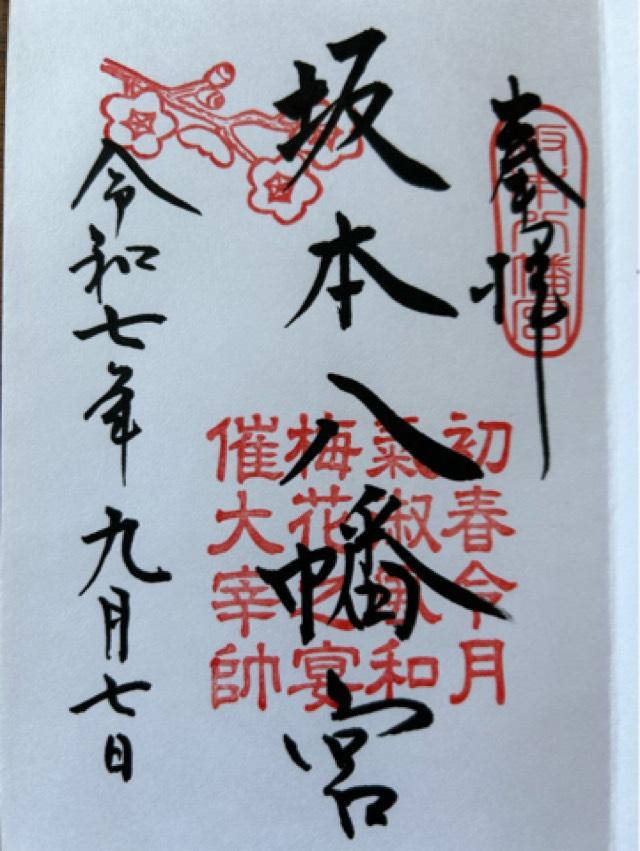 奉拝
坂本八幡宮
坂本八幡宮
初春令月
氣淑風和
梅花之宴
催大宰帥
令和七年九月七日